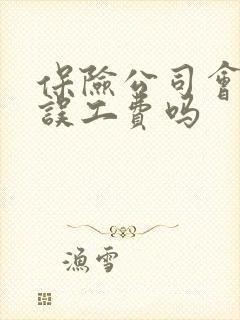 保險公司會
誤工費吗
漁雪